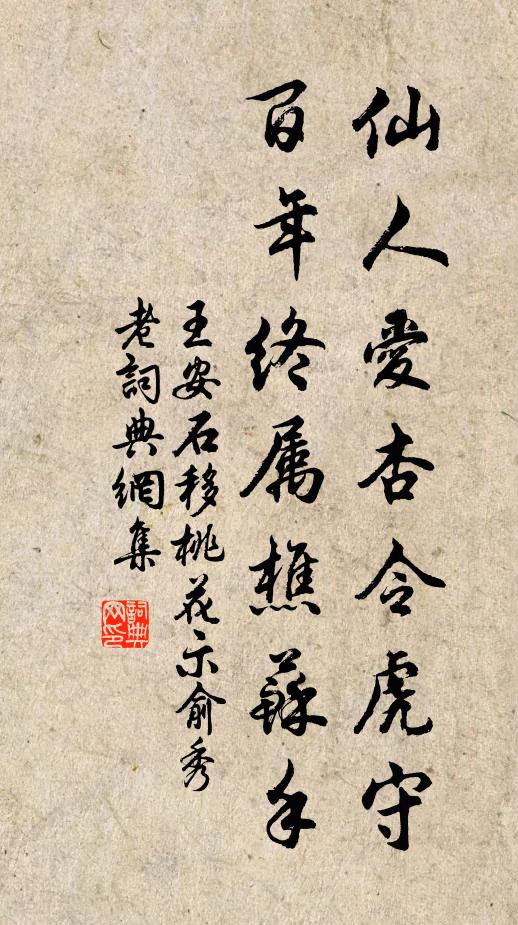 仙人愛杏令虎守
百年終属樵蘇手
王安石移桃花示俞秀
老詞典網集
詞典网印